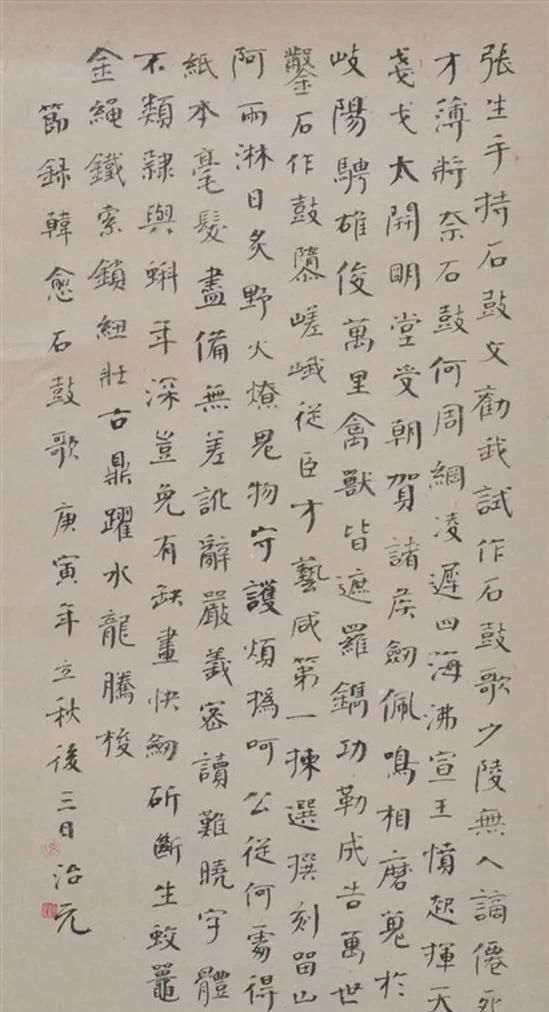 張生手持石鼓文勸我試作石鼓歌少陵無人謫僊死
才薄將奈石鼓何周綱凌遲四海沸宣王憤起揮天
戈太開明堂受朝賀諸侯劒佩鳴相磨蒐於
岐陽騁雄俊萬里禽獸皆遮羅鐫功勒成告萬世
鑿石作鼓隳嵯峨從臣才藝咸第一揀選撰刻留山
阿雨淋日炙野火燎鬼物守護煩撝呵公從何處得
紙本毫髮盡備無差訛辭嚴義密讀難曉字體
不類隸與蝌年深豈免有缺畫快劒斫斷生蛟鼉
金繩鐵索鎖紐壯古鼎躍水龍騰梭
節錄韓愈石鼓歌 庚寅年立秋後三日 治元